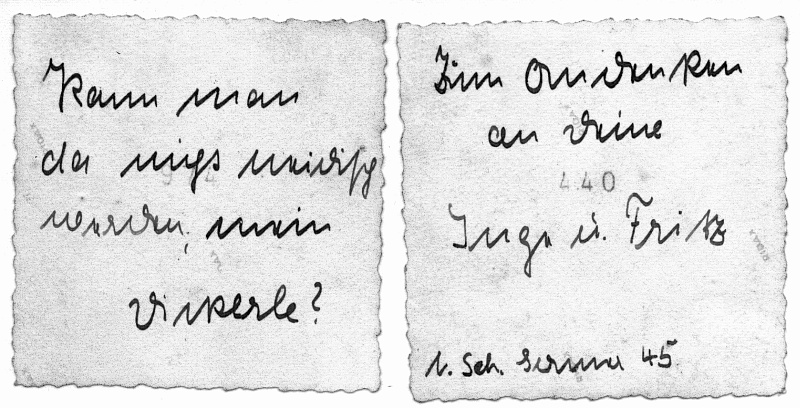 Kann man
da nicht neidisch
werden, mein
Dickerle?
Zum Andenken
an Deine
440
Inge u. Fritz
1. Sch. 45